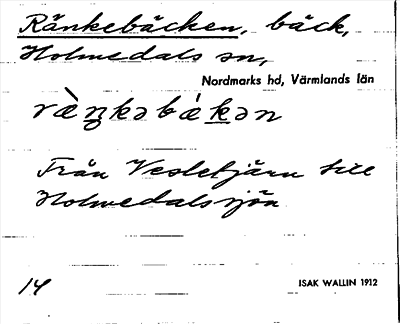 Ränkebäcken, bäck,
Holmedals sn,
Nordmarks hd, Värmlands län
ræ̀ŋkəbǽkən
Från Vesletjärn till
Holmedalssjön
14 ISAK WALLIN 1912